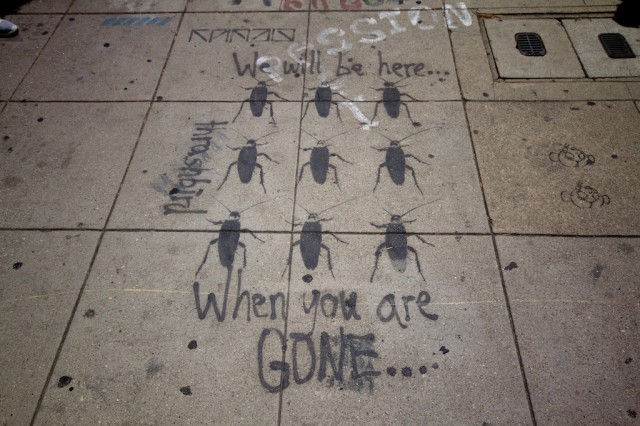 SESSION
We will be here...
thrashbird
When you are
GONE....